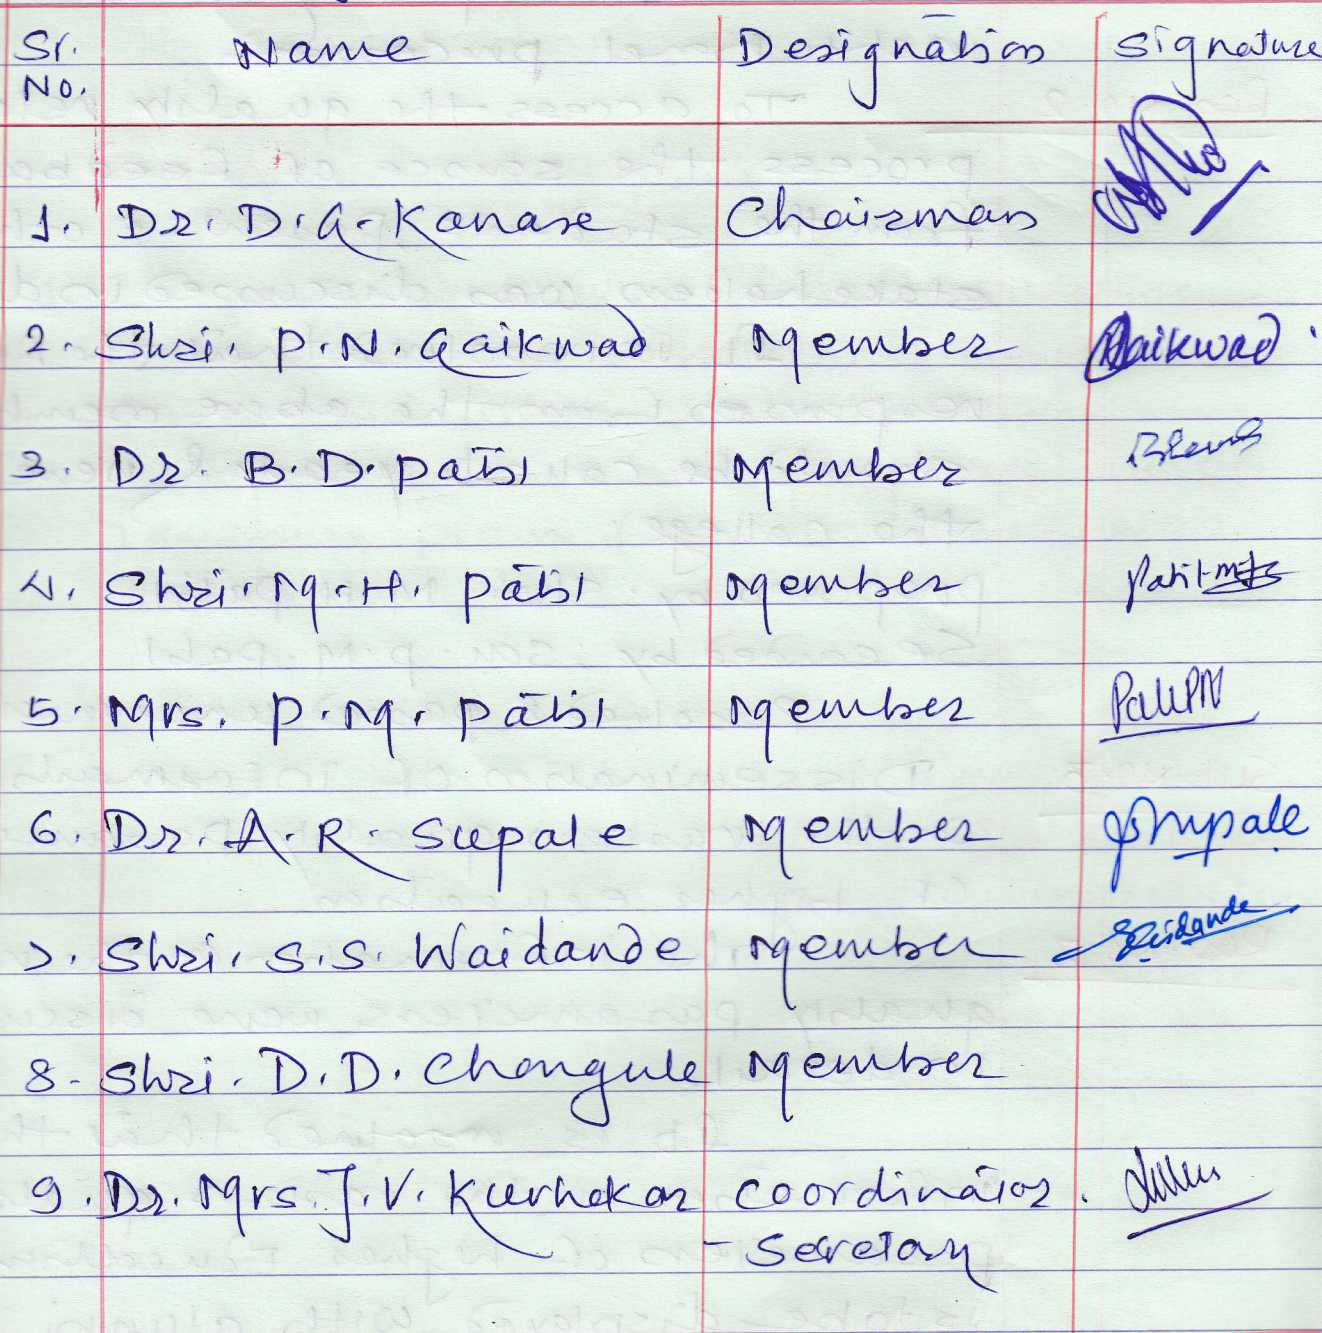 Sr. Name Designation Signature
No.
1. Dr. D. G. Kanase Chairman
2. Shri. P. N. Gaikwad Member Gaikwad
3. Dr. B. D. Patil Member
4. Shri. M. H. Patil Member Patil
5. Mrs. P. M. Patil Member Patil PM
6. Dr. A. R. Supale Member Supale
7. Shri. S. S. Waidande Member Waidande
8. Shri. D. D. Chougule Member
9. Dr. Mrs. J. V. Kurhekar Coordinator.
- Secretary